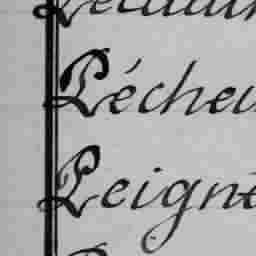 Pécheu
Peigné